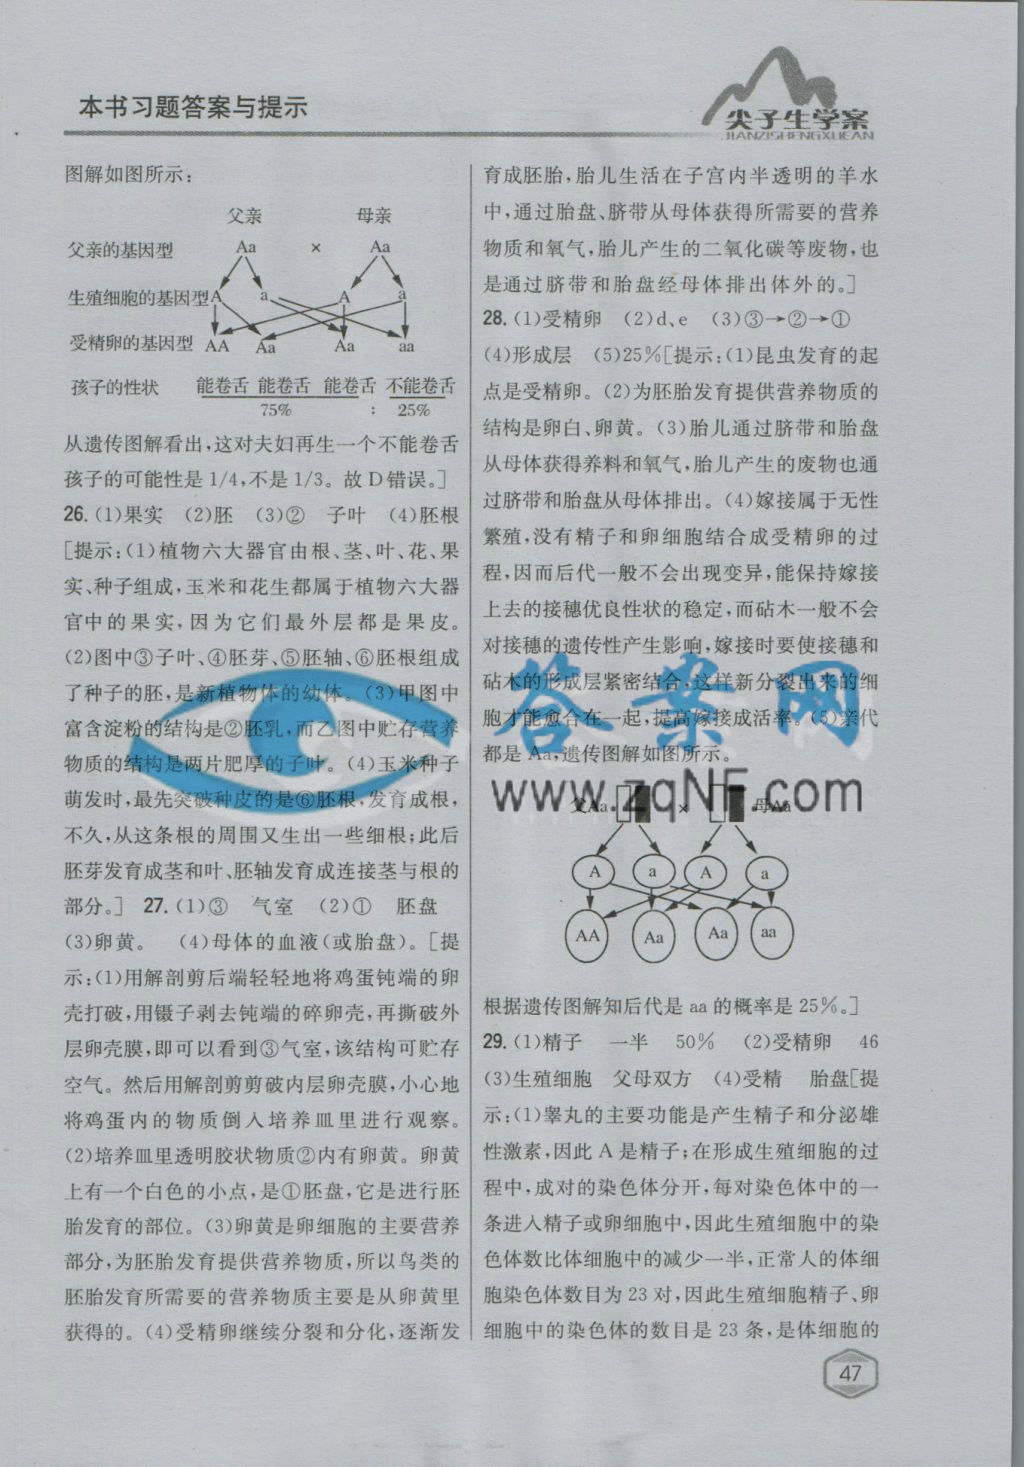 本书习题答案与提示
尖子生学案
JIANZISHENGXUEAN
图解如图所示:
父亲 母亲
父亲的基因型 Aa × Aa
生殖细胞的基因型 A a A a
受精卵的基因型 AA Aa Aa aa
孩子的性状 能卷舌 能卷舌 能卷舌 不能卷舌
75% : 25%
从遗传图解看出,这对夫妇再生一个不能卷舌
孩子的可能性是1/4,不是1/3。故D错误。]
26.(1)果实 (2)胚 (3)② 子叶 (4)胚根
[提示:(1)植物六大器官由根、茎、叶、花、果
实、种子组成,玉米和花生都属于植物六大器
官中的果实,因为它们最外层都是果皮。
(2)图中③子叶、④胚芽、⑤胚轴、⑥胚根组成
了种子的胚,是新植物体的幼体。(3)甲图中
富含淀粉的结构是②胚乳,而乙图中贮存营养
物质的结构是两片肥厚的子叶。(4)玉米种子
萌发时,最先突破种皮的是⑥胚根,发育成根,
不久,从这条根的周围又生出一些细根;此后
胚芽发育成茎和叶、胚轴发育成连接茎与根的
部分。] 27.(1)③ 气室 (2)① 胚盘
(3)卵黄。 (4)母体的血液(或胎盘)。[提
示:(1)用解剖剪后端轻轻地将鸡蛋钝端的卵
壳打破,用镊子剥去钝端的碎卵壳,再撕破外
层卵壳膜,即可以看到③气室,该结构可贮存
空气。然后用解剖剪剪破内层卵壳膜,小心地
将鸡蛋内的物质倒入培养皿里进行观察。
(2)培养皿里透明胶状物质②内有卵黄。卵黄
上有一个白色的小点,是①胚盘,它是进行胚
胎发育的部位。(3)卵黄是卵细胞的主要营养
部分,为胚胎发育提供营养物质,所以鸟类的
胚胎发育所需要的营养物质主要是从卵黄里
获得的。(4)受精卵继续分裂和分化,逐渐发
育成胚胎,胎儿生活在子宫内半透明的羊水
中,通过胎盘、脐带从母体获得所需要的营养
物质和氧气,胎儿产生的二氧化碳等废物,也
是通过脐带和胎盘经母体排出体外的。]
28.(1)受精卵 (2)d、e (3)③→②→①
(4)形成层 (5)25%[提示:(1)昆虫发育的起
点是受精卵。(2)为胚胎发育提供营养物质的
结构是卵白、卵黄。(3)胎儿通过脐带和胎盘
从母体获得养料和氧气,胎儿产生的废物也通
过脐带和胎盘从母体排出。(4)嫁接属于无性
繁殖,没有精子和卵细胞结合成受精卵的过
程,因而后代一般不会出现变异,能保持嫁接
上去的接穗优良性状的稳定,而砧木一般不会
对接穗的遗传性产生影响,嫁接时要使接穗和
砧木的形成层紧密结合,这样新分裂出来的细
胞才能愈合在一起,提高嫁接成活率。(5)亲代
都是Aa,遗传图解如图所示。
答案网
www.zqNF.com
父Aa × 母Aa
A a A a
AA Aa Aa aa
根据遗传图解知后代是aa的概率是25%。]
29.(1)精子 一半 50% (2)受精卵 46
(3)生殖细胞 父母双方 (4)受精 胎盘[提
示:(1)睾丸的主要功能是产生精子和分泌雄
性激素,因此A是精子;在形成生殖细胞的过
程中,成对的染色体分开,每对染色体中的一
条进入精子或卵细胞中,因此生殖细胞中的染
色体数比体细胞中的减少一半,正常人的体细
胞染色体数目为23对,因此生殖细胞精子、卵
细胞中的染色体的数目是23条,是体细胞的
47